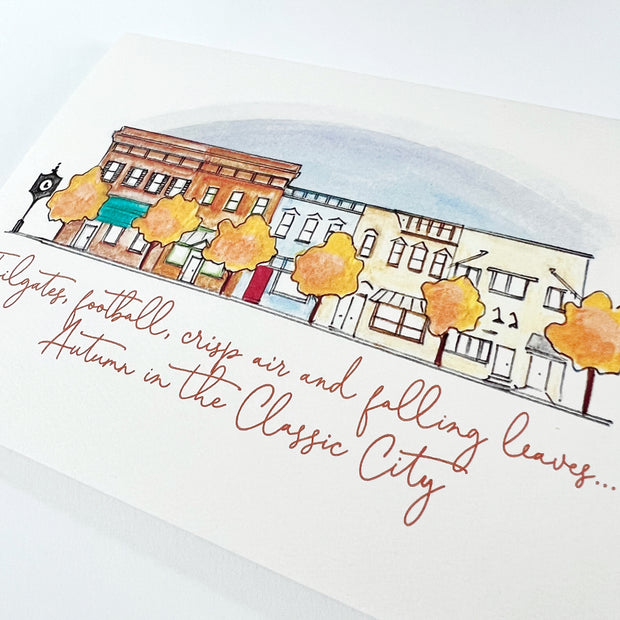 Tailgates, football, crisp air and falling leaves...
Autumn in the Classic City